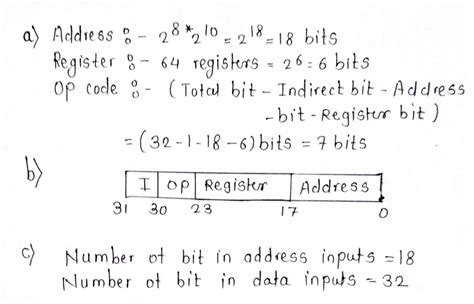 a) Address :- 2^8 * 2^10 = 2^18 = 18 bits
Register :- 64 registers = 2^6 = 6 bits
Op code :- (Total bit - Indirect bit - Address
-bit - Register bit)
= (32 - 1 - 18 - 6) bits = 7 bits
b)
I OP Register Address
31 30 23 17 0
c) Number of bit in address inputs = 18
Number of bit in data inputs = 32